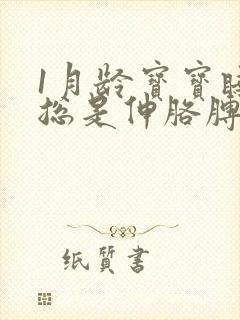 1月龄宝宝睡
总是伸胳膊
纸质书